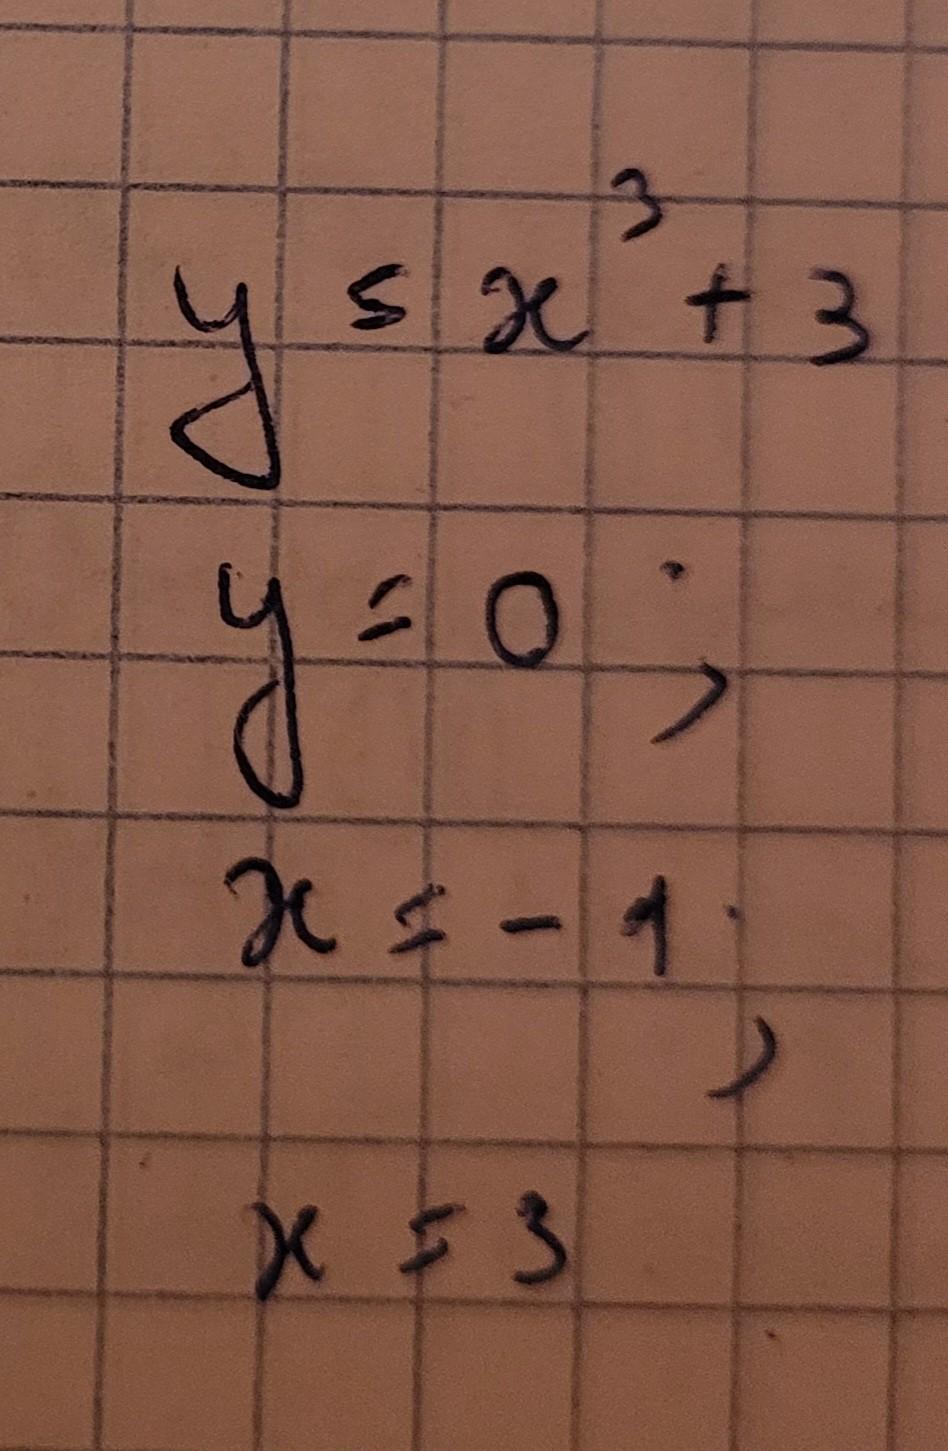 y = x³ + 3
y = 0 ;
x = - 1 ;
x = 3